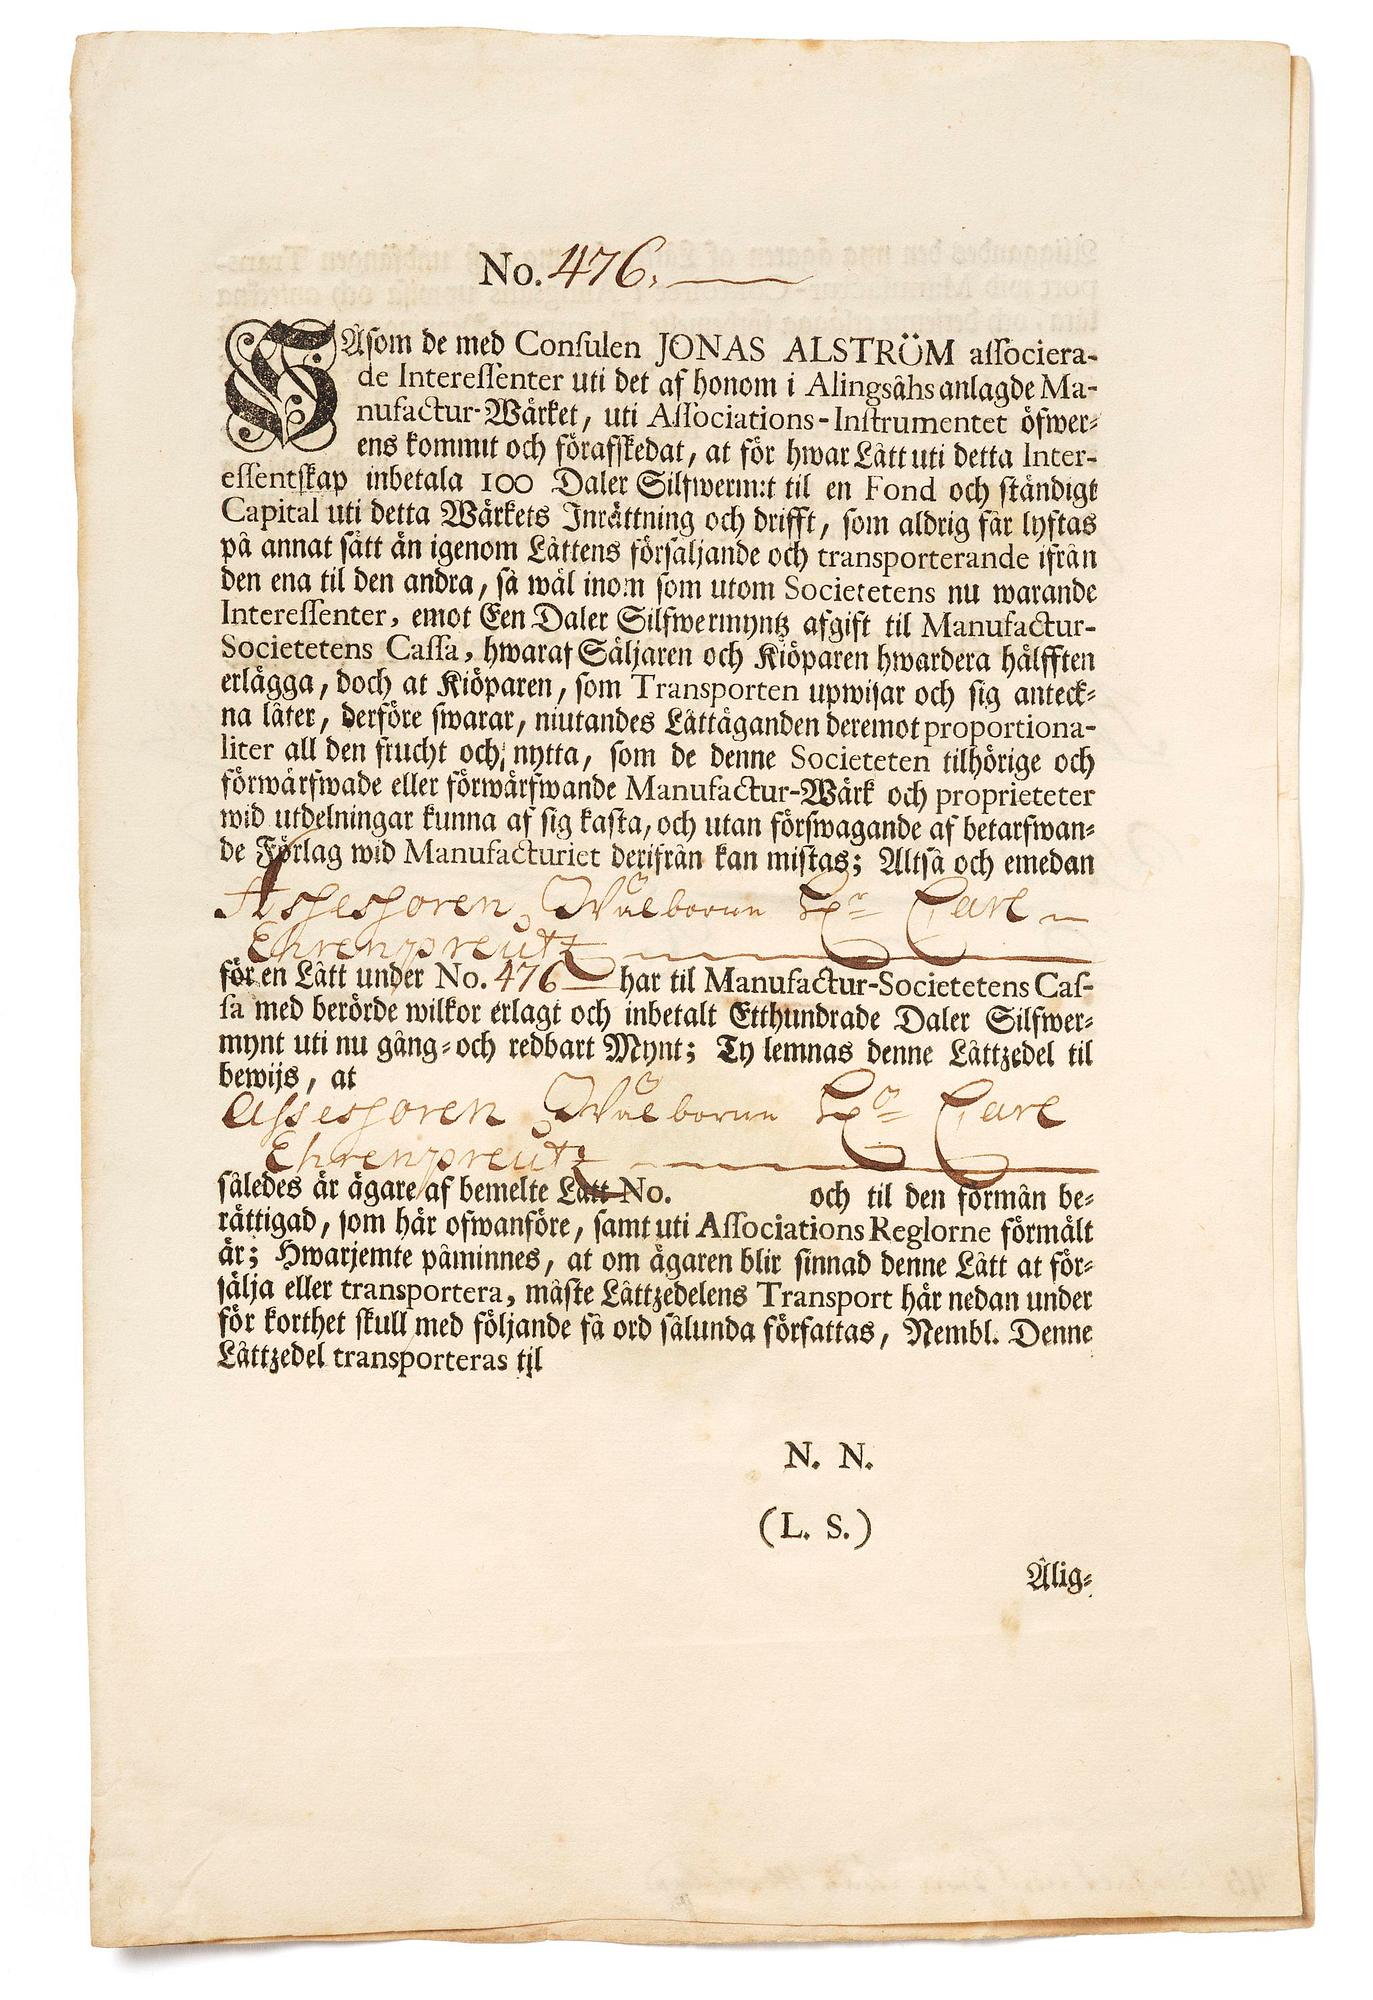 No. 476.
SÅsom de med Consulen JONAS ALSTRÖM associera-
de Interessenter uti det af honom i Alingsåhs anlagde Ma-
nufactur-Wärket, uti Associations-Instrumentet öfwer-
ens kommit och förafskedat, at för hwar Lått uti detta Inter-
essentskap inbetala 100 Daler Silfwerm:t til en Fond och ståndigt
Capital uti detta Wärkets Inrättning och drifft, som aldrig får lyftas
på annat sätt än igenom Låttens försäljande och transporterande ifrån
den ena til den andra, så wäl inom som utom Societetens nu warande
Interessenter, emot Een Daler Silfwermyntz afgift til Manufactur-
Societetens Cassa, hwaraf Säljaren och Kiöparen hwardera hälfften
erlägga, doch at Kiöparen, som Transporten upwisar och sig anteck-
na låter, derföre swarar, niutandes Låttäganden deremot proportiona-
liter all den frucht och nytta, som de denne Societeten tilhörige och
förwärfwade eller förwärfwande Manufactur-Wärk och proprieteter
wid utdelningar kunna af sig kasta, och utan förswagande af betarfwan-
de Förlag wid Manufacturiet derifrån kan mistas; Altså och emedan
Assessoren Wälborne Hr Carl
Ehrenpreutz
för en Lått under No. 476 har til Manufactur-Societetens Cas-
sa med berörde wilkor erlagt och inbetalt Etthundrade Daler Silfwer-
mynt uti nu gång- och redbart Mynt; Ty lemnas denne Låttzedel til
bewijs, at
Assessoren Wälborne Hr Carl
Ehrenpreutz
således är ägare af bemelte Lått No. och til den förmån be-
rättigad, som här ofwanföre, samt uti Associations Reglorne förmält
är; Hwarjemte påminnes, at om ägaren blir sinnad denne Lått at för-
sälja eller transportera, måste Låttzedelens Transport här nedan under
för korthet skull med följande få ord sålunda författas, Nembl. Denne
Låttzedel transporteras til
N. N.
(L. S.)
Ålig-